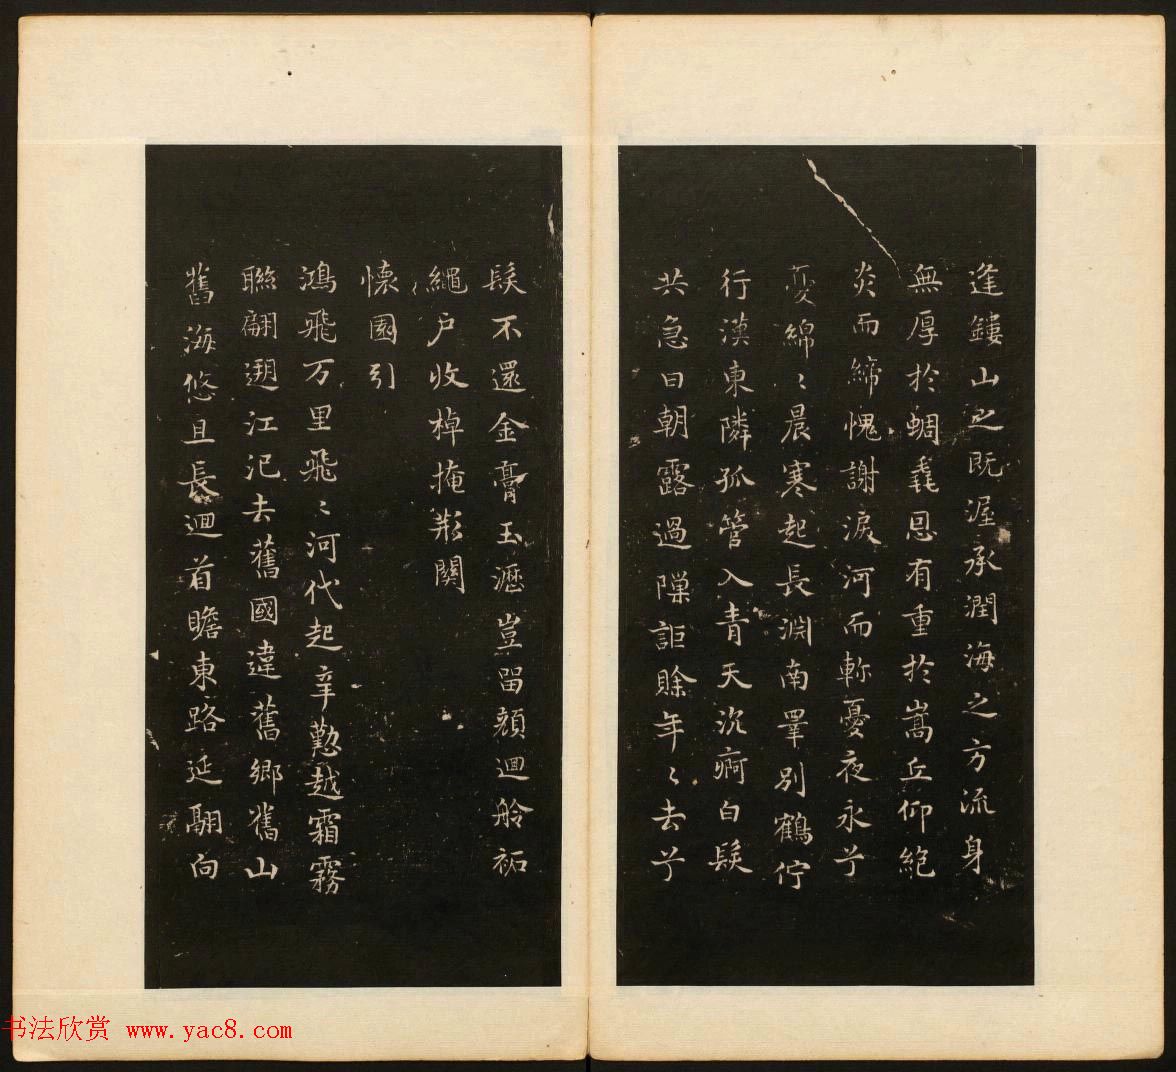 逢鏤山之既渥承潤海之方流身
無厚於蜩毳恩有重於嵩丘仰絶
炎而締愧謝淚河而軫憂夜永兮
憂綿〻晨寒起長淵南罩別鶴佇
行漢東隣孤管入青天沉痾白髮
共急日朝露過隟詎賒年〻去兮
髮不還金膏玉瀝豈留顔迴舲祏
繩戶收棹掩荊關
懐園引
鴻飛万里飛〻河代起辛勤越霜霧
聯翩遡江汜去舊國違舊鄉舊山
舊海悠且長迴首瞻東路延翮向
书法欣赏 www.yac8.com